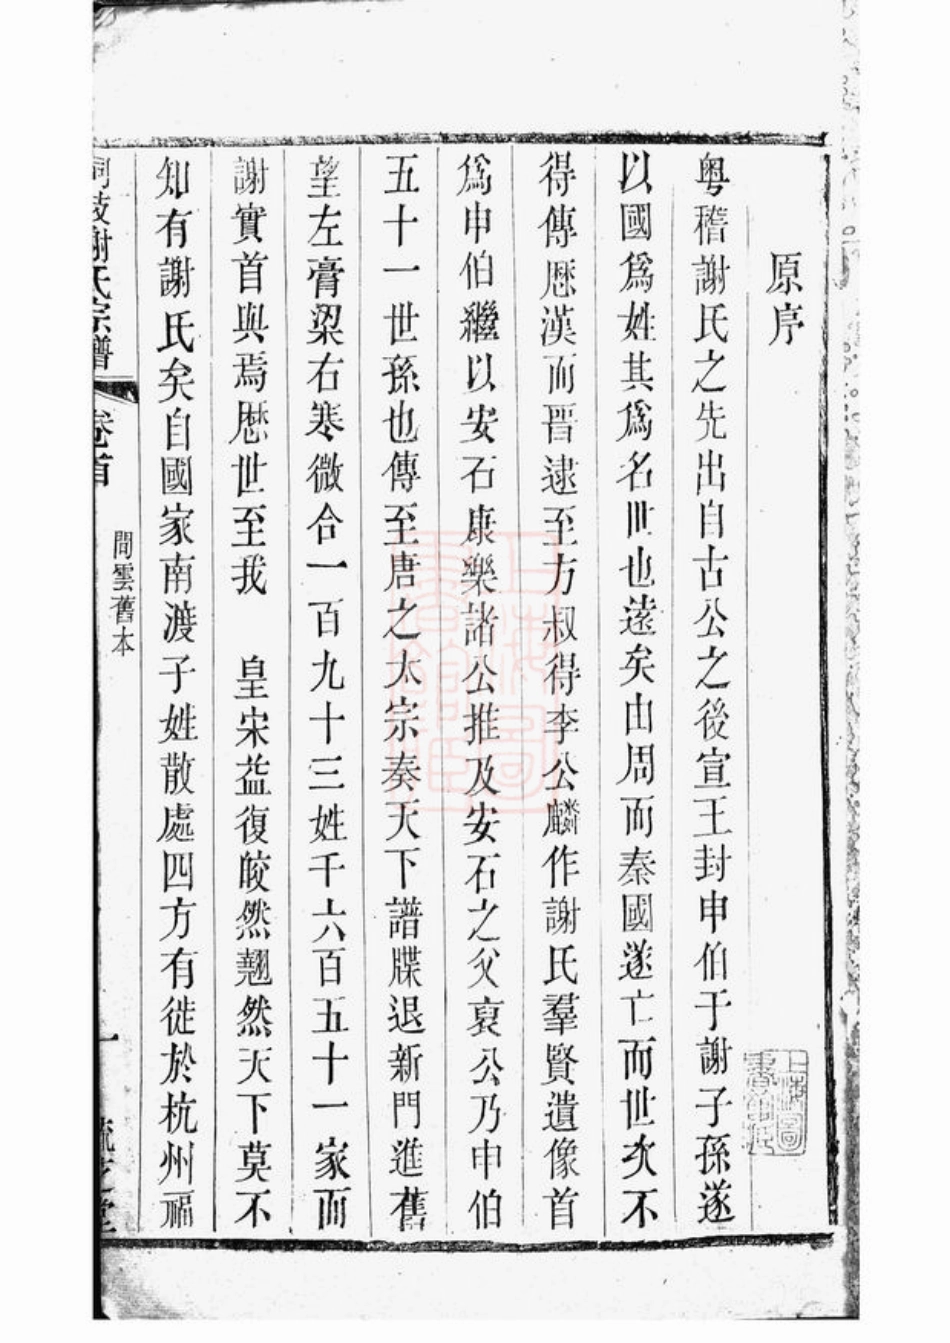 原序
粤稽謝氏之先出自古公之後宣王封申伯于謝子孫遂
以國爲姓其爲名世也遠矣由周而秦國遂亡而世次不
得傳歷漢而晋逮至方叔得李公麟作謝氏羣賢遺像首
爲申伯繼以安石康樂諸公推及安石之父裒公乃申伯
五十一世孫也傳至唐之太宗奏天下譜牒退新門進舊
望左膏粱右寒微合一百九十三姓千六百五十一家而
謝實首與焉歷世至我 皇宋益復皎然翹然天下莫不
知有謝氏矣自國家南渡子姓散處四方有徙於杭州福
謝氏宗譜 卷首 間雲舊本 一
上海圖書館藏